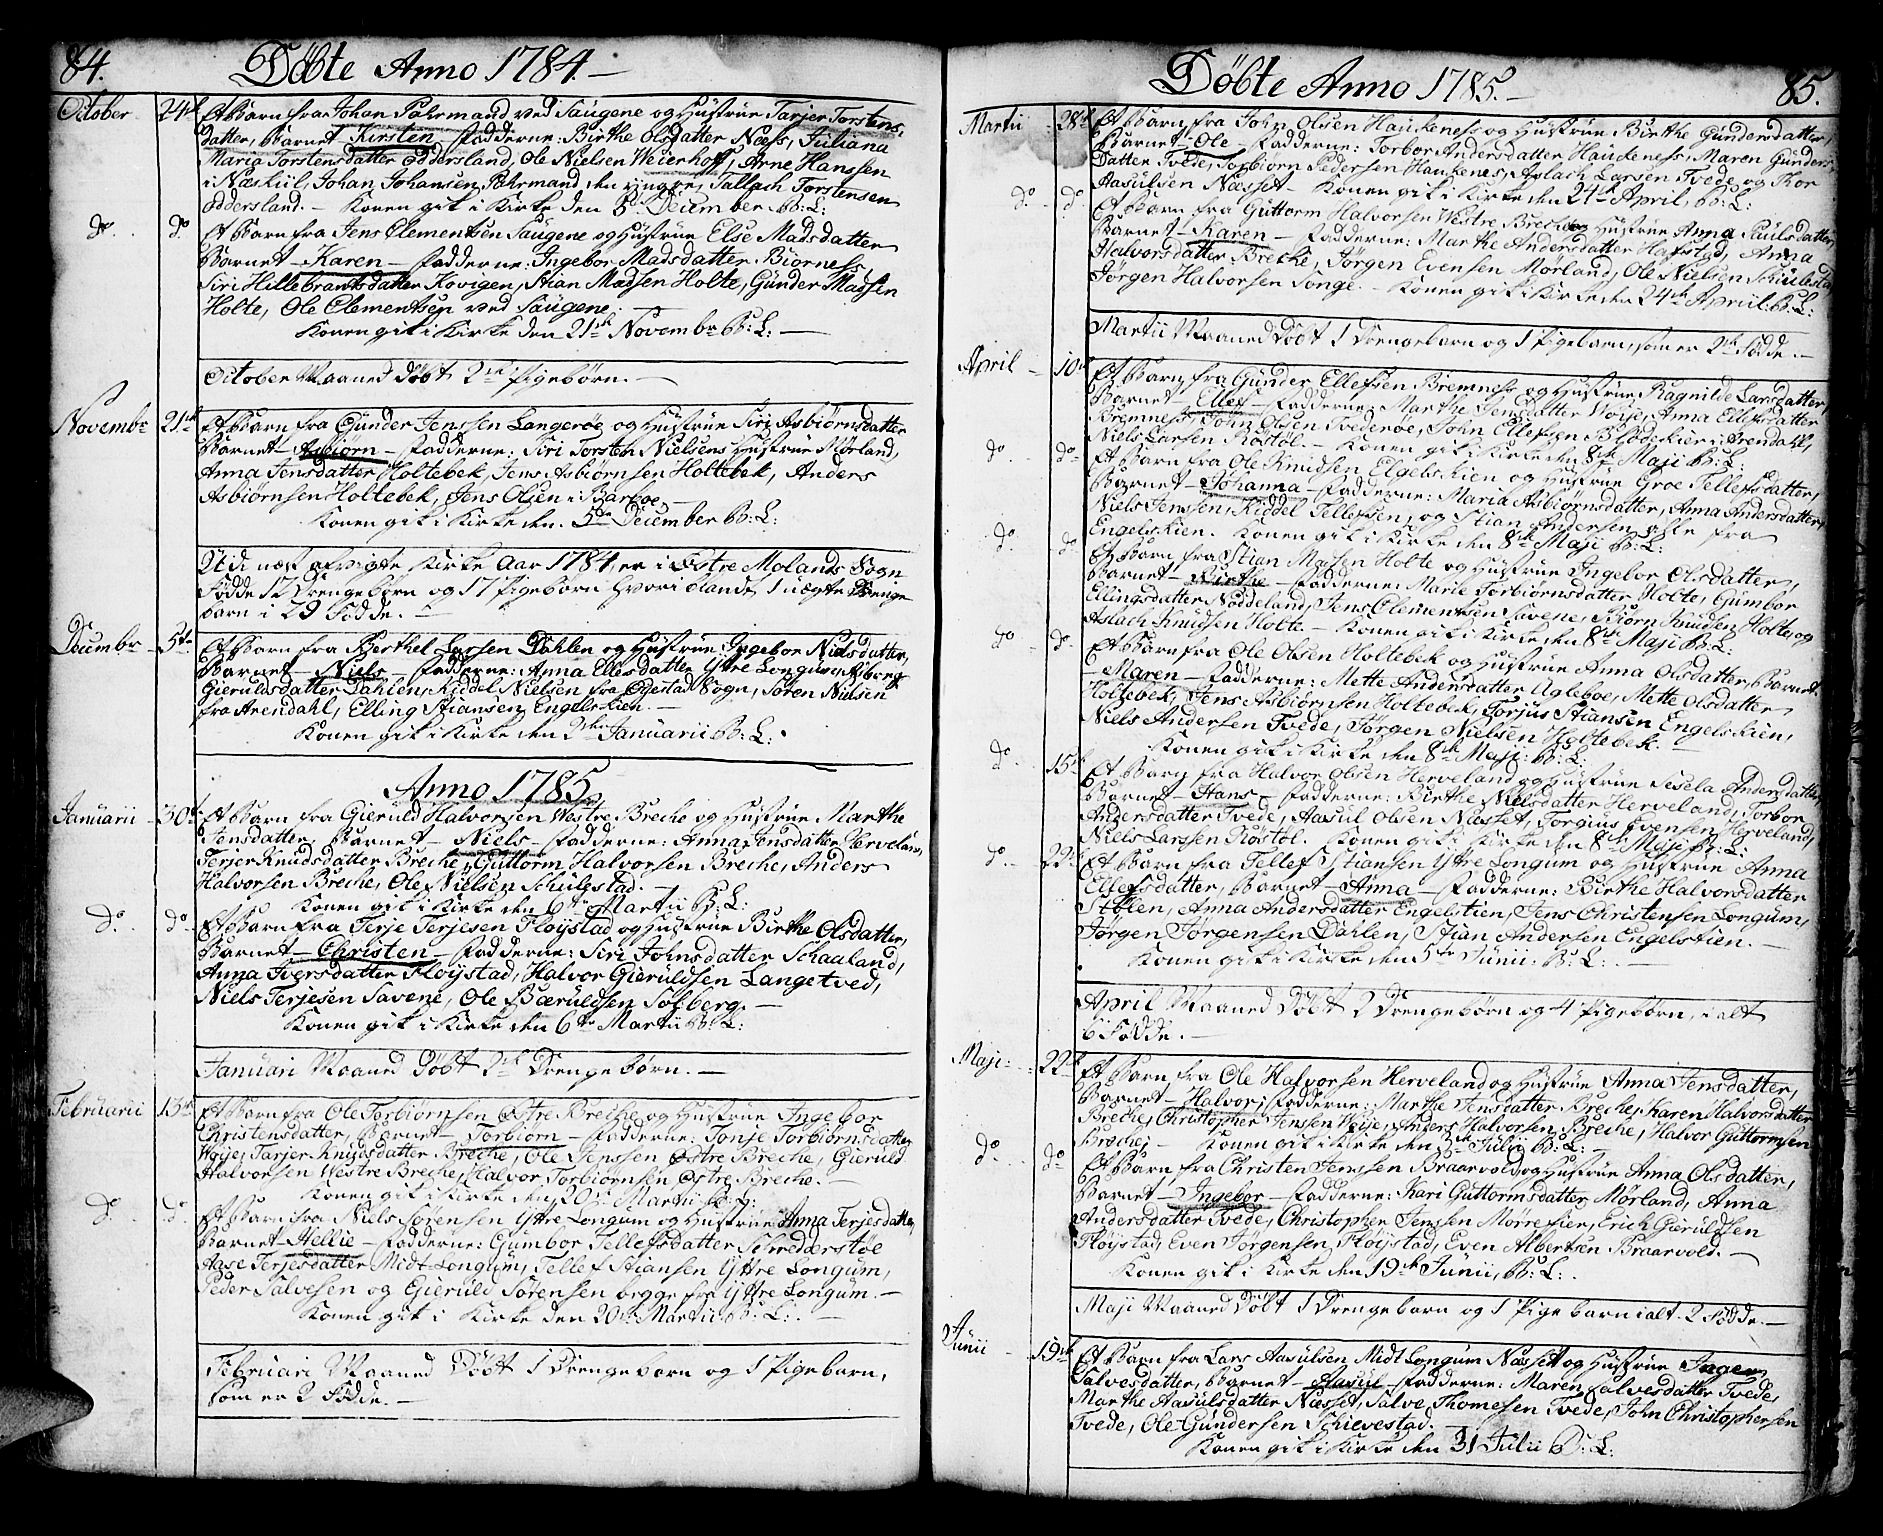 84.
Döbte Anno 1784.
October 24de Et Barn fra Johan Fahrmand ved Saugene og Hustrue Tarjer Torstens-
datter, Barnet Kirsten Fadderne: Birthe Olsdatter Næss, Juliana
Maria Torstensdatter Oddersland, Ole Nielsen Weierhoff, Arne Hanssen
i Næskiil, Johan Johansen Fahrmand, den yngre, Tallach Torstensen
Oddersland. Konen gik i Kirke den 5te December B: L:
do. do Et Barn fra Jens Clementsen Saugene og Hustrue Else Madsdatter
Barnet Karen Fadderne: Ingebor Madsdatter Biorness
Siri Hillebrantsdatter Kovigen, Stian Madsen Holte, Gunder Madsen
Holte, Ole Clementsen ved Saugene.
Konen gik i Kirke den 21de Novembr B: L:
October Maaned Döbt 2de Pigebörn.
Novembr 21de Et Barn fra Gunder Jenssen Langeröe og Hustrue Siri Asbiörnsdatter
Barnet Asbiörn Fadderne: Siri Torsten Nielsens Hustrue Mørland,
Anna Jensdatter Holtebek, Jens Asbiörnsen Holtebek, Anders
Asbiörnsen Holtebek, Jens Olsen i Barboe
Konen gik i Kirke den 5te December B: L:
Udi næst afvigte Kirke Aar 1784 er i Østre Molands Sogn
Födde 12 Drengebörn og 17 Pigebörn hvori blandt 1 uægte Drenge
barn i 29 Födde.
Decembr 5te Et Barn fra Berthel Larsen Dahlen og Hustrue Ingebor Nielsdatter,
Barnet Niels Fadderne: Anna Ellesdatter Ytre Longum,
Gieruldsdatter Dahlen, Kiddel Nielsen fra Øiestad Sogn, Sören Nielsen
fra Arendahl, Elling Stiansen Engelskien.
Konen gik i Kirke den 2den Januarii B: L:
Anno 1785
Januarii 30te Et Barn fra Gieruld Halvorsen Westre Breche og Hustrue Marthe
Jensdatter, Barnet Niels Fadderne: Anna Jensdatter Herveland,
Terjer Knudsdatter Breche, Guttorm Halvorsen Breche, Anders
Halvorsen Breche, Ole Nielsen Schulestad.
Konen gik i Kirke den 6te Martii B: L:
do. do Et Barn fra Terje Terjesen Flöystad og Hustrue Birthe Olsdatter,
Barnet Christen Fadderne: Siri Johnsdatter Schaaland,
Anna Iversdatter Flöystad, Halvor Gieruldsen Langetved,
Niels Terjesen Savene, Ole Bæruldsen Solberg.
Konen gik i Kirke den 6te Martii B: L:
Januari Maaned Döbt 2de Drengebörn.
Februarii 13de Et Barn fra Ole Torbiörnsen Østre Breche og Hustrue Ingebor
Christensdatter, Barnet Torbiörn Fadderne: Tonje Torbiörnsdatter
Weije, Tarjer Knudsdatter Breche, Ole Jenssen Østre Breche, Gieruld
Halvorsen Westre Breche, Halvor Torbiörnsen Østre Breche.
Konen gik i Kirke den 20de Martii B: L:
do. do Et Barn fra Niels Sørensen Yttre Longum og Hustrue Anna Terjesdatter
Barnet Hellie Fadderne: Gumbor Tellefsdatter Schredderstöe
Aase Terjesdatter Midt Longum, Tellef Stiansen Yttre Longum,
Peder Salvesen og Gieruld Sörensen begge fra Yttre Longum.
Konen gik i Kirke den 20de Martii B: L:
Februari Maaned Döbt 1 Drengebarn og 1 Pigebarn,
som er 2 Födde.
Döbte Anno 1785.
85.
Martii 28de Et Barn fra John Olsen Haukeness og Hustrue Birthe Gundersdatter,
Barnet Ole Fadderne: Torbor Andersdatter Haukeness, Maren Gunders
Datter Tvede, Torbiörn Pedersen Haukenes, Aslach Larsen Tvede og Tor
Aasulsen Næsset Konen gik i Kirke den 24de April, B: L:
do do Et Barn fra Guttorm Halvorsen Westre Breche og Hustrue Anna Paulsdatter,
Barnet Karen Fadderne: Marthe Andersdatter Hafstad, Anna
Halvorsdatter Breche, Jörgen Evensen Mørland, Ole Nielsen Schulestad,
Jörgen Halvorsen Songe. Konen gik i Kirke den 24de April B: L:
Martii Maaned Döbt 1 Drengebarn og 1 Pigebarn, som er 2de Födde.
April 10de Et Barn fra Gunder Ellefsen Bremness og Hustrue Ragnilde Larsdatter,
Barnet Ellef Fadderne: Marthe Jensdatter Weije, Anna Ellefsdatter
Bremness, John Olsen Tvederöe, John Ellefsen Blödekier i Arendahl,
Niels Larsen Röstöl. Konen gik i Kirke den 8de Maji B: L:
do do Et Barn fra Ole Knudsen Engelskien og Hustrue Groe Tellefsdatter,
Barnet Johanna Fadderne: Maria Asbiörnsdatter, Anna Andersdatter,
Niels Jensen, Kiddel Tellefsen, og Stian Andersen alle fra
Engelskien. Konen gik i Kirke den 8de Maji B: L:
do do Et Barn fra Stian Madsen Holte og Hustrue Ingebor Olsdatter,
Barnet Birthe Fadderne: Marie Torbiörnsdatter Holte, Gumbor
Ellingsdatter Nöddeland, Jens Clementsen Savene, Biörn Knudsen Holte, og
Aslach Knudsen Holte. Konen gik i Kirke den 8de Maji B: L:
do do Et Barn fra Ole Olsen Holtebek og Hustrue Anna Olsdatter, Barnet
Maren Fadderne: Mette Andersdatter Agleboe, Mette Olsdatter
Holtebek, Jens Asbiörnsen Holtebek, Torjus Stiansen Engelskien,
Niels Andersen Tvede, Jörgen Nielsen Holtebek.
Konen gik i Kirke den 8de Maji B: L:
do 15de Et Barn fra Halvor Olsen Herveland og Hustrue Sesela Andersdatter,
Barnet Hans Fadderne: Birthe Nielsdatter Herveland, Torbor
Andersdatter Tvede, Aasul Olsen Næsset, Torgius Evensen Herveland,
Niels Larssen Röstöl. Konen gik i Kirke den 8de Maji B: L:
do 22de Et Barn fra Tellef Stiansen Yttre Longum og Hustrue Anna
Ellefsdatter, Barnet Anna Fadderne: Birthe Halvorsdatter
Stölen, Anna Andersdatter Engelstien, Jens Christensen Longum,
Jörgen Jörgensen Dahlen, Stian Andersen Engelstien.
Konen gik i Kirke den 5te Junii B: L:
April Maaned Döbt 2 Drengebörn og 4 Pigebörn, i alt
6 Födde.
Maji 22de Et Barn fra Ole Halvorsen Herveland og Hustrue Anna Jensdatter,
Barnet Halvor, Fadderne: Marthe Jensdatter Breche, Karen Halvorsdatter
Breche, Christopher Jensen Weije, Anders Halvorsen Breche, Halvor Guttormsen
Breche; Konen gik i Kirke den 3de Julii B: L:
do do Et Barn fra Christen Jenssen Braarvold og Hustrue Anna Olsdatter,
Barnet Ingebor Fadderne: Kari Guttormsdatter Mørland, Anna
Andersdatter Tvede, Christopher Jenssen Mörrefier, Erich Gieruldsen
Flöystad, Even Jörgensen Flöystad, Even Albertsen Braarvold.
Konen gik i Kirke den 19de Junii, B: L:
Maji Maaned Döbt 1 Drengebarn og 1 Pigebarn i alt 2 Födde.
Junii 19de Et Barn fra Lars Aasulsen Midt Longum Næsset og Hustrue Inger
Salvesdatter, Barnet Aasul Fadderne: Maren Salvesdatter Tvede,
Marthe Aasulsdatter Næsset, Salve Thomesen Tvede, John Christophersen
Tvede, Ole Gundersen Schievestad.
Konen gik i Kirke den 31 Julii B: L: